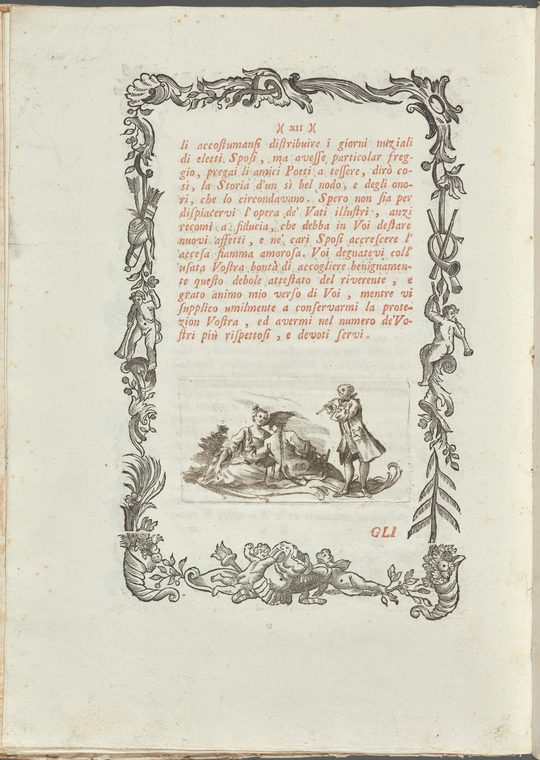 )( XII )(
li accoſtumanſi diſtribuire i giorni nuziali
di eletti Spoſi, ma aveſſe particolar freg-
gio, pregai li amici Poeti a teſſere, dirò co-
sì, la Storia d'un sì bel nodo, e degli ono-
ri, che lo circondavano. Spero non ſia per
diſpiacervi l'opera de' Vati illuſtri, anzi
recomi a fiducia, che debba in Voi deſtare
nuovi affetti, e ne' cari Spoſi accreſcere l'
acceſa fiamma amoroſa. Voi degnatevi coll'
uſata Voſtra bontà di accogliere benignamen-
te queſto debole atteſtato del riverente, e
grato animo mio verſo di Voi, mentre vi
ſupplico umilmente a conſervarmi la prote-
zion Voſtra, ed avermi nel numero de'Vo-
ſtri più riſpettoſi, e devoti ſervi.
GLI